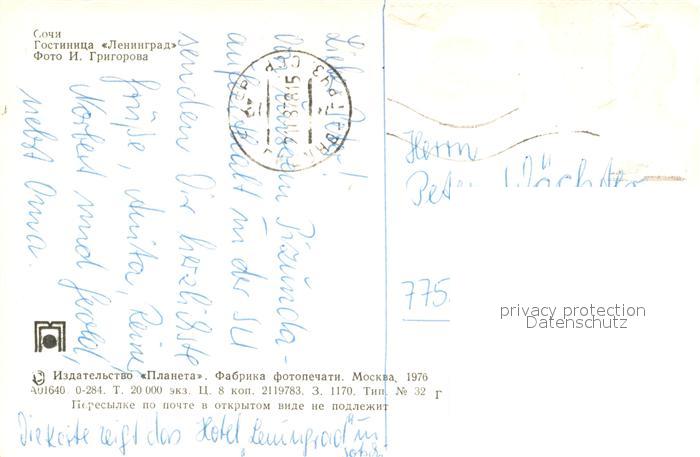 Сочи
Гостиница «Ленинград»
Фото И. Григорова
Lieber Peter!
Von unserem Pizunda-
aufenthalt in der SU
senden Dir herzlichste
Grüße, Anita, Reiner,
Norbert und Gerold,
nebst Oma.
Herrn
Peter Wächter
775
privacy protection
Datenschutz
© Издательство «Планета». Фабрика фотопечати. Москва, 1976
А01640 0-284. Т. 20 000 экз. Ц. 8 коп. 2119783. З. 1170. Тип. № 32
Г
Пересылке по почте в открытом виде не подлежит
Die Karte zeigt das Hotel „Leningrad" in